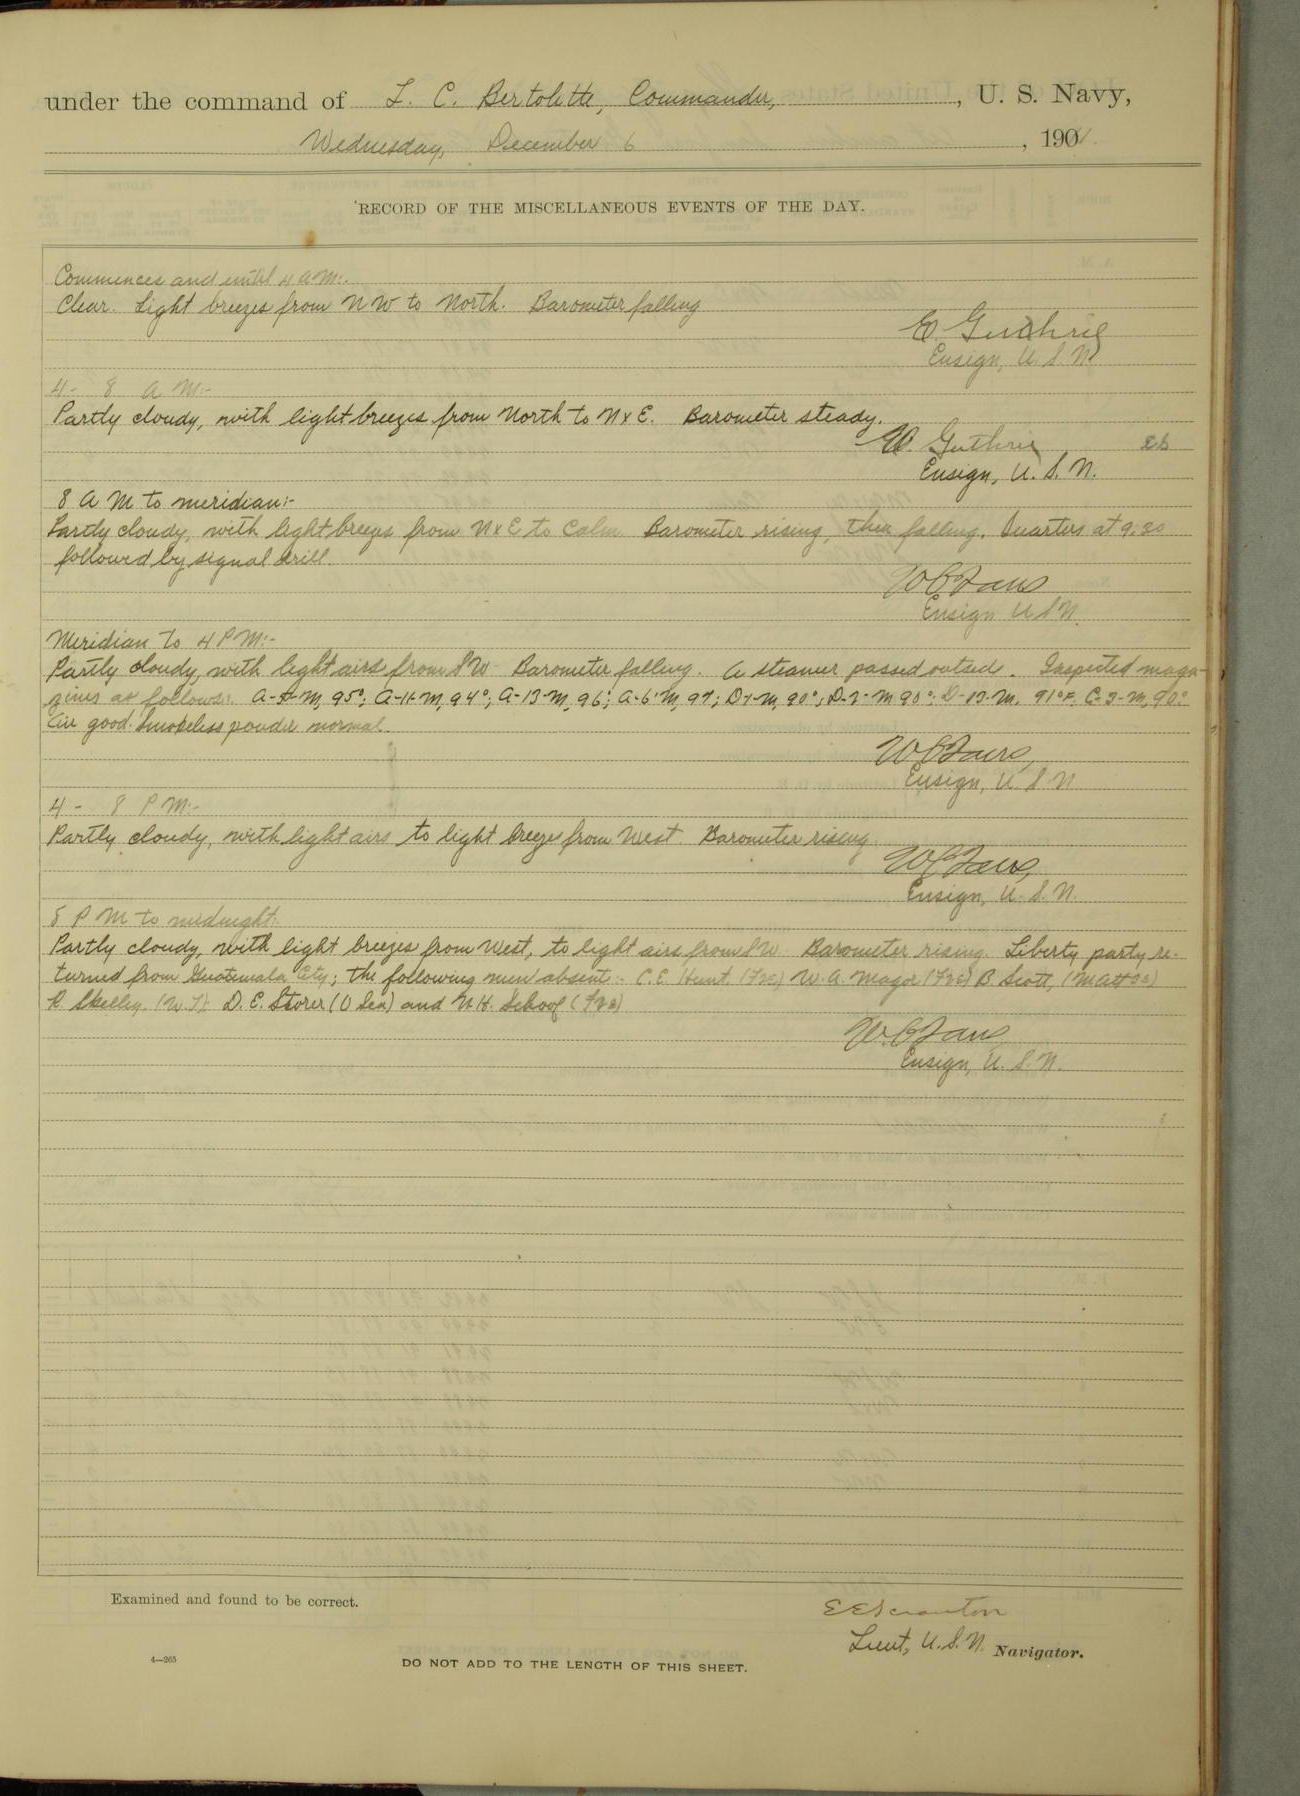 under the command of L. C. Bertolette, Commander, , U. S. Navy,
Wednesday, December 6 , 190
RECORD OF THE MISCELLANEOUS EVENTS OF THE DAY.
Commences and until 4 a m:-
Clear. Light breezes from N W to North. Barometer falling
E Guthrie
Ensign, U. S. N
4 - 8 a m:-
Partly cloudy, with light breezes from North to N x E. Barometer steady.
Guthrie
Ensign, U. S. N.
8 A M to meridian:-
Partly cloudy, with light breezes from N x E to Calm Barometer rising, then falling. Quarters at 9:30
followed by signal drill.
Ensign U S N.
Meridian to 4 P M:-
Partly cloudy, with light airs from S W Barometer falling. A steamer passed outside. Inspected maga-
zines as follows: A- M, 95°; A-11-M, 94°; A-13-M, 96; A-6-M, 97; D-1-M, 90°; D- -M 90°; D-13-M, 91°F. C-3-M, 90°
Air good. Smokeless powder normal.
Ensign, U. S N
4 - 8 P M:-
Partly cloudy, with light airs to light breezes from West. Barometer rising
Ensign, U. S. N.
8 P M to midnight:
Partly cloudy, with light breezes from West, to light airs from S W Barometer rising. Liberty party re-
turned from Guatemala City; the following men absent:- C. E. Hunt, W. A. Major B. Scott, (Matt )
R. Skelley, (W.T.) D. E. Storer (O Sea) and H. Schoof
Ensign, U. S. N.
Examined and found to be correct.
E E Scranton
Lieut, U. S. N. Navigator.
4—265
DO NOT ADD TO THE LENGTH OF THIS SHEET.